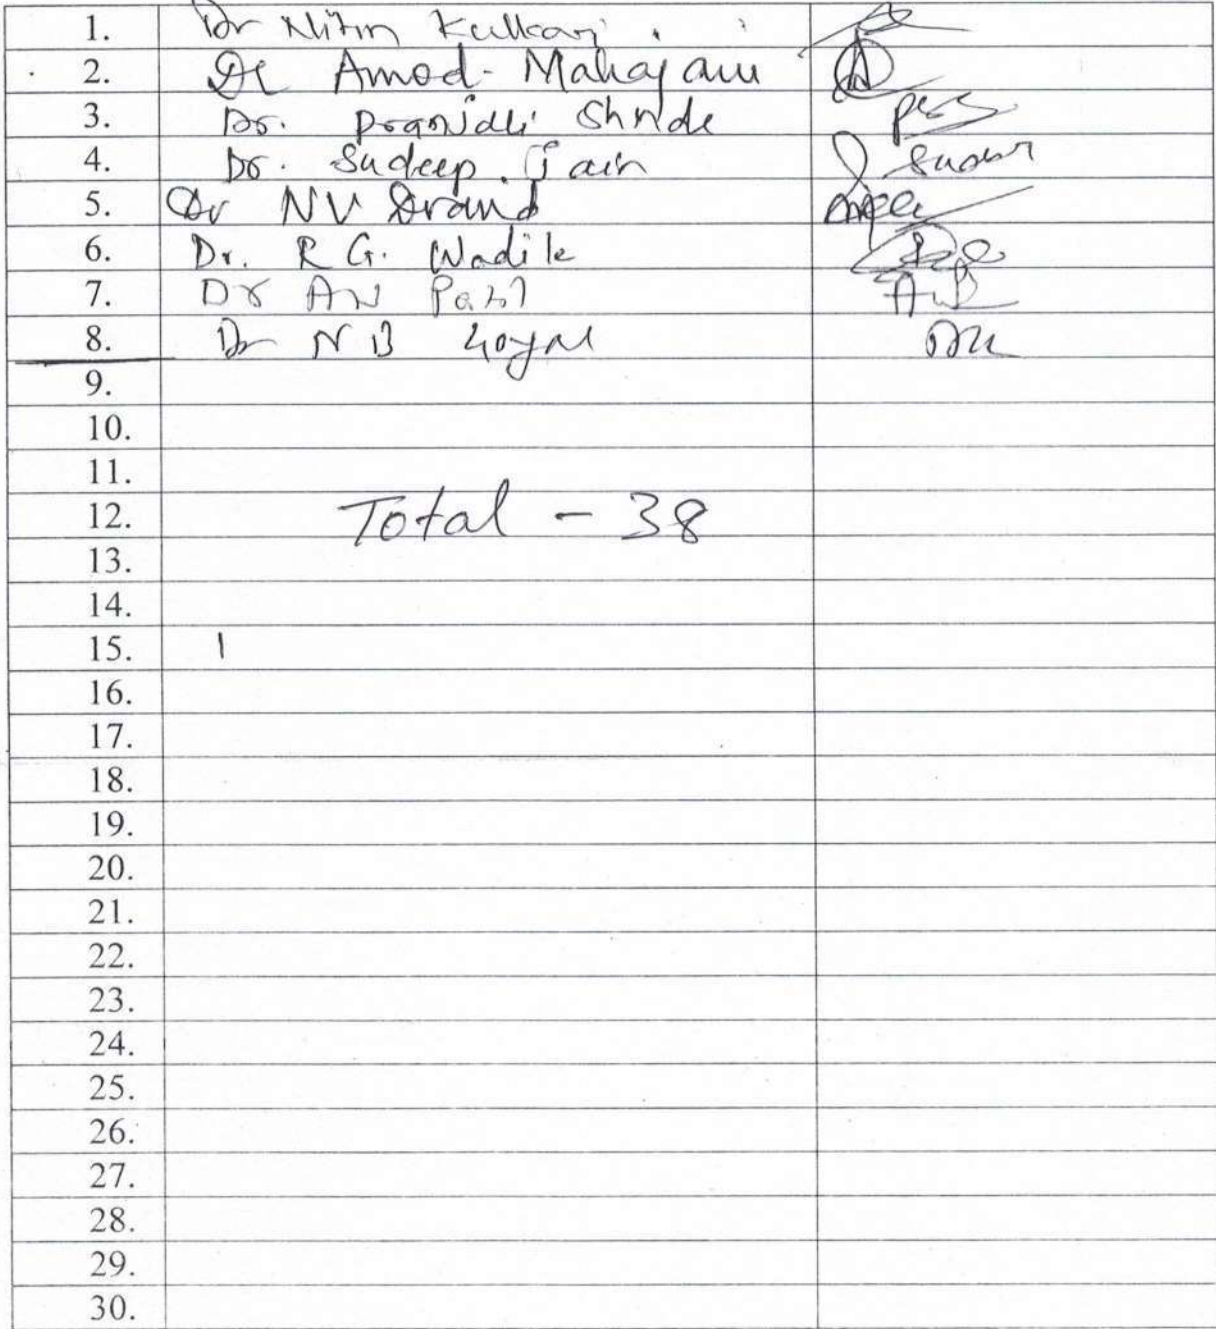 1. Dr Nitin Kulkarni
2. Dr Amod Mahajan
3. Dr. Pranidhi Shinde
4. Dr. Sudeep Jain
5. Dr NV
6. Dr. R G. Wadile
7. Dr AN Patil
8. Dr N B Goyal
9.
10.
11.
12. Total - 38
13.
14.
15. 1
16.
17.
18.
19.
20.
21.
22.
23.
24.
25.
26.
27.
28.
29.
30.